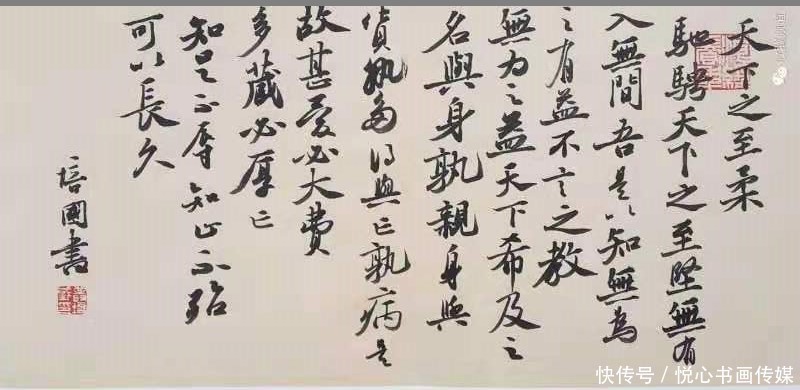 天下之至柔
馳騁天下之至堅無有
入無間吾是以知無為
之有益不言之教
無为之益天下希及之
名與身孰親身與
貨孰多得與亡孰病是
故甚愛必大費
多藏必厚亡
知足不辱知止不殆
可以長久
培國書
快传号 / 悦心书画传媒